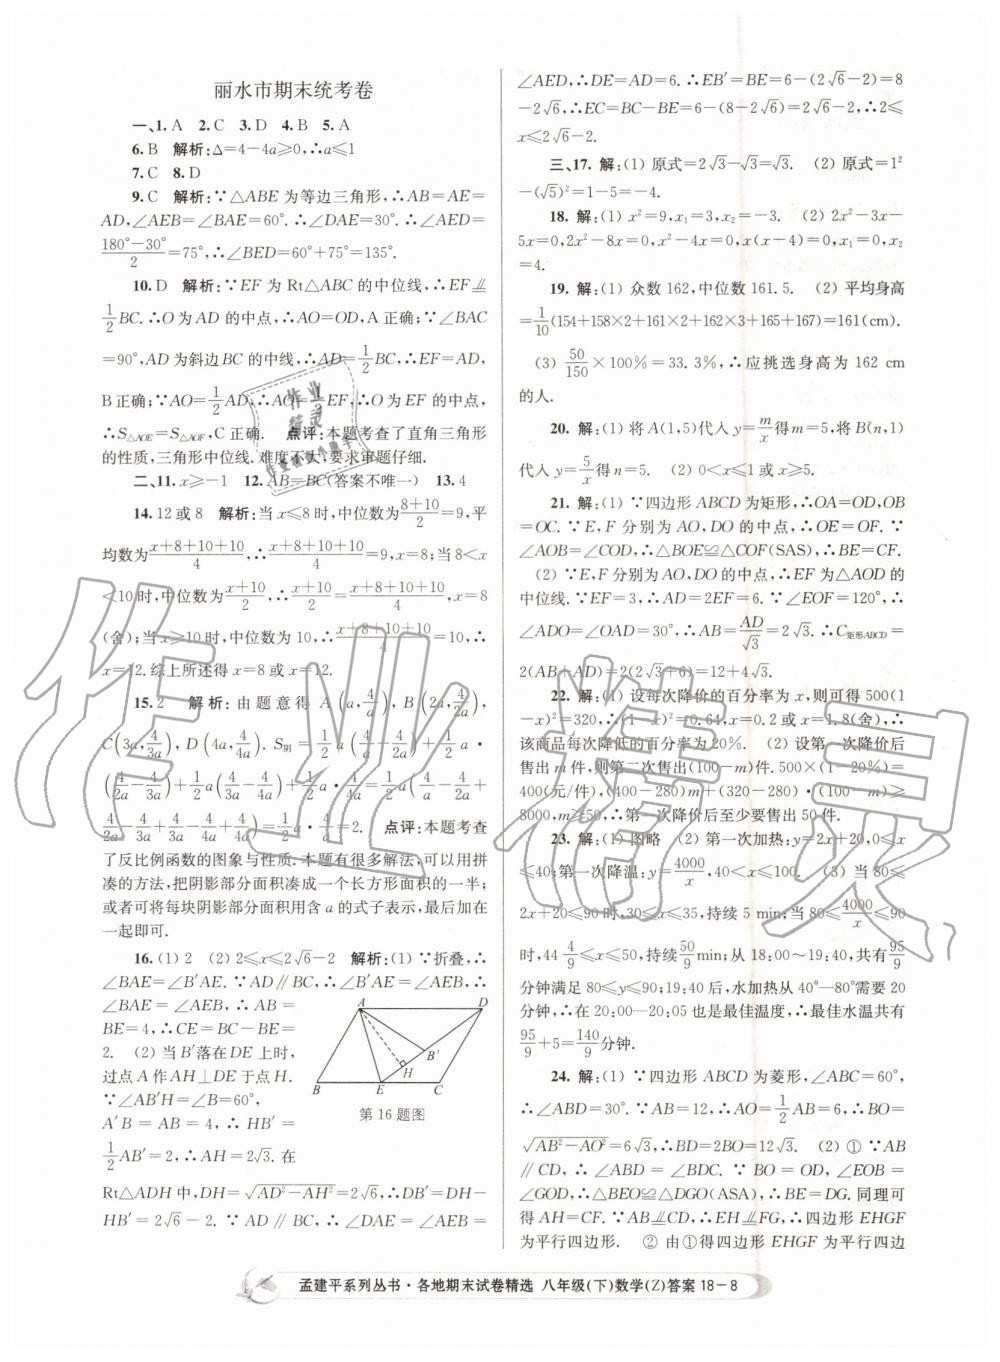 丽水市期末统考卷
一、1. A　2. C　3. D　4. B　5. A
6. B　解析:Δ=4-4a⩾0,∴a⩽1
7. C　8. D
9. C　解析:∵△ABE 为等边三角形,∴AB=AE=
AD,∠AEB=∠BAE=60°.∴∠DAE=30°.∴∠AED=
(180°-30°)/2=75°,∴∠BED=60°+75°=135°.
10. D　解析:∵EF 为 Rt△ABC 的中位线,∴EF⫽
1/2BC.∴O 为 AD 的中点,∴AO=OD,A 正确;∵∠BAC
=90°,AD 为斜边 BC 的中线,∴AD=1/2BC,∴EF=AD,
B 正确;∵AO=1/2AD,∴AO=1/2EF.∵O 为 EF 的中点,
∴S△AOE=S△AOF,C 正确.　点评:本题考查了直角三角形
的性质,三角形中位线. 难度不大,要求审题仔细.
二、11. x⩾-1　12. AB=BC(答案不唯一)　13. 4
14. 12 或 8　解析:当 x⩽8 时,中位数为(8+10)/2=9,平
均数为(x+8+10+10)/4,∴(x+8+10+10)/4=9,x=8;当 8<x
<10 时,中位数为(x+10)/2,∴(x+10)/2=(x+8+10+10)/4,x=8
(舍);当 x⩾10 时,中位数为 10,∴(x+8+10+10)/4=10,∴
x=12. 综上所述得 x=8 或 x=12.
15. 2　解析:由题意得 A(a,4/a),B(2a,4/2a),
C(3a,4/3a),D(4a,4/4a). S阴=1/2a(4/a-4/2a)+1/2a·
(4/2a-4/3a)+1/2a(4/3a-4/4a)+1/2a·4/4a=1/2a(4/a-4/2a+
4/2a-4/3a+4/3a-4/4a+4/4a)=1/2a·4/a=2.　点评:本题考查
了反比例函数的图象与性质. 本题有很多解法,可以用拼
凑的方法,把阴影部分面积凑成一个长方形面积的一半;
或者可将每块阴影部分面积用含 a 的式子表示,最后加在
一起即可.
16. (1) 2　(2) 2⩽x⩽2√6-2　解析:(1) ∵折叠,∴
∠BAE=∠B′AE. ∵AD∥BC,∴∠B′AE=∠AEB,∴
∠BAE=∠AEB,∴AB=
BE=4,∴CE=BC-BE=
2.　(2) 当 B′落在 DE 上时,
过点 A 作 AH⊥DE 于点 H.
∵∠AB′H=∠B=60°,
A′B=AB=4,∴HB′=
1/2AB′=2,∴AH=2√3. 在
A
D
B′
H
B
E
C
第 16 题图
Rt△ADH 中,DH=√(AD²-AH²)=2√6,∴DB′=DH-
HB′=2√6-2. ∵AD∥BC,∴∠DAE=∠AEB=
∠AED,∴DE=AD=6.∴EB′=BE=6-(2√6-2)=8
-2√6,∴EC=BC-BE=6-(8-2√6)=2√6-2,∴2⩽
x⩽2√6-2.
三、17. 解:(1) 原式=2√3-√3=√3.　(2) 原式=1²
-(√5)²=1-5=-4.
18. 解:(1) x²=9,x₁=3,x₂=-3.　(2) 2x²-3x-
5x=0,2x²-8x=0,x²-4x=0,x(x-4)=0,x₁=0,x₂
=4.
19. 解:(1) 众数 162,中位数 161.5.　(2) 平均身高
=1/10(154+158×2+161×2+162×3+165+167)=161(cm).
(3) 50/150×100%=33.3%,∴应挑选身高为 162 cm
的人.
20. 解:(1) 将 A(1,5)代入 y=m/x得 m=5,将 B(n,1)
代入 y=5/x得 n=5.　(2) 0<x⩽1 或 x⩾5.
21. 解:(1) ∵四边形 ABCD 为矩形,∴OA=OD,OB
=OC. ∵E,F 分别为 AO,DO 的中点,∴OE=OF. ∵
∠AOB=∠COD,∴△BOE≌△COF(SAS),∴BE=CF.
(2) ∵E,F 分别为 AO,DO 的中点,∴EF 为△AOD 的
中位线. ∵EF=3,∴AD=2EF=6. ∵∠EOF=120°,∴
∠ADO=∠OAD=30°,∴AB=AD/√3=2√3. ∴C矩形ABCD=
2(AB+AD)=2(2√3+6)=12+4√3.
22. 解:(1) 设每次降价的百分率为 x,则可得 500(1
-x)²=320,∴(1-x)²=0.64,x=0.2 或 x=1.8(舍),∴
该商品每次降低的百分率为 20%.　(2) 设第一次降价后
售出 m 件,则第二次售出(100-m)件. 500×(1-20%)=
400(元/件),(400-280)m+(320-280)·(100-m)⩾
8000,m⩾50,∴第一次降价后至少要售出 50 件.
23. 解:(1) 图略　(2) 第一次加热:y=2x+20,0⩽x
⩽40;第一次降温:y=4000/x,40<x⩽100.　(3) 当 80⩽
2x+20⩽90 时,30⩽x⩽35,持续 5 min;当 80⩽4000/x⩽90
时,44 4/9⩽x⩽50,持续50/9min;∴从 18:00~19:40,共有95/9
分钟满足 80⩽y⩽90;19:40 后,水加热从 40°—80°需要 20
分钟,∴在 20:00—20:05 也是最佳温度,∴最佳水温共有
95/9+5=140/9分钟.
24. 解:(1) ∵四边形 ABCD 为菱形,∠ABC=60°,
∴∠ABD=30°. ∵AB=12,∴AO=1/2AB=6,∴BO=
√(AB²-AO²)=6√3,∴BD=2BO=12√3.　(2) ① ∵AB
∥CD,∴∠ABD=∠BDC. ∵BO=OD,∠EOB=
∠GOD,∴△BEO≌△DGO(ASA),∴BE=DG. 同理可
得 AH=CF. ∵AB⫽CD,∴EH⫽FG,∴四边形 EHGF
为平行四边形.　② 由①得四边形 EHGF 为平行四边
孟建平系列丛书·各地期末试卷精选　八年级(下)数学(Z)答案 18－8
作业精灵